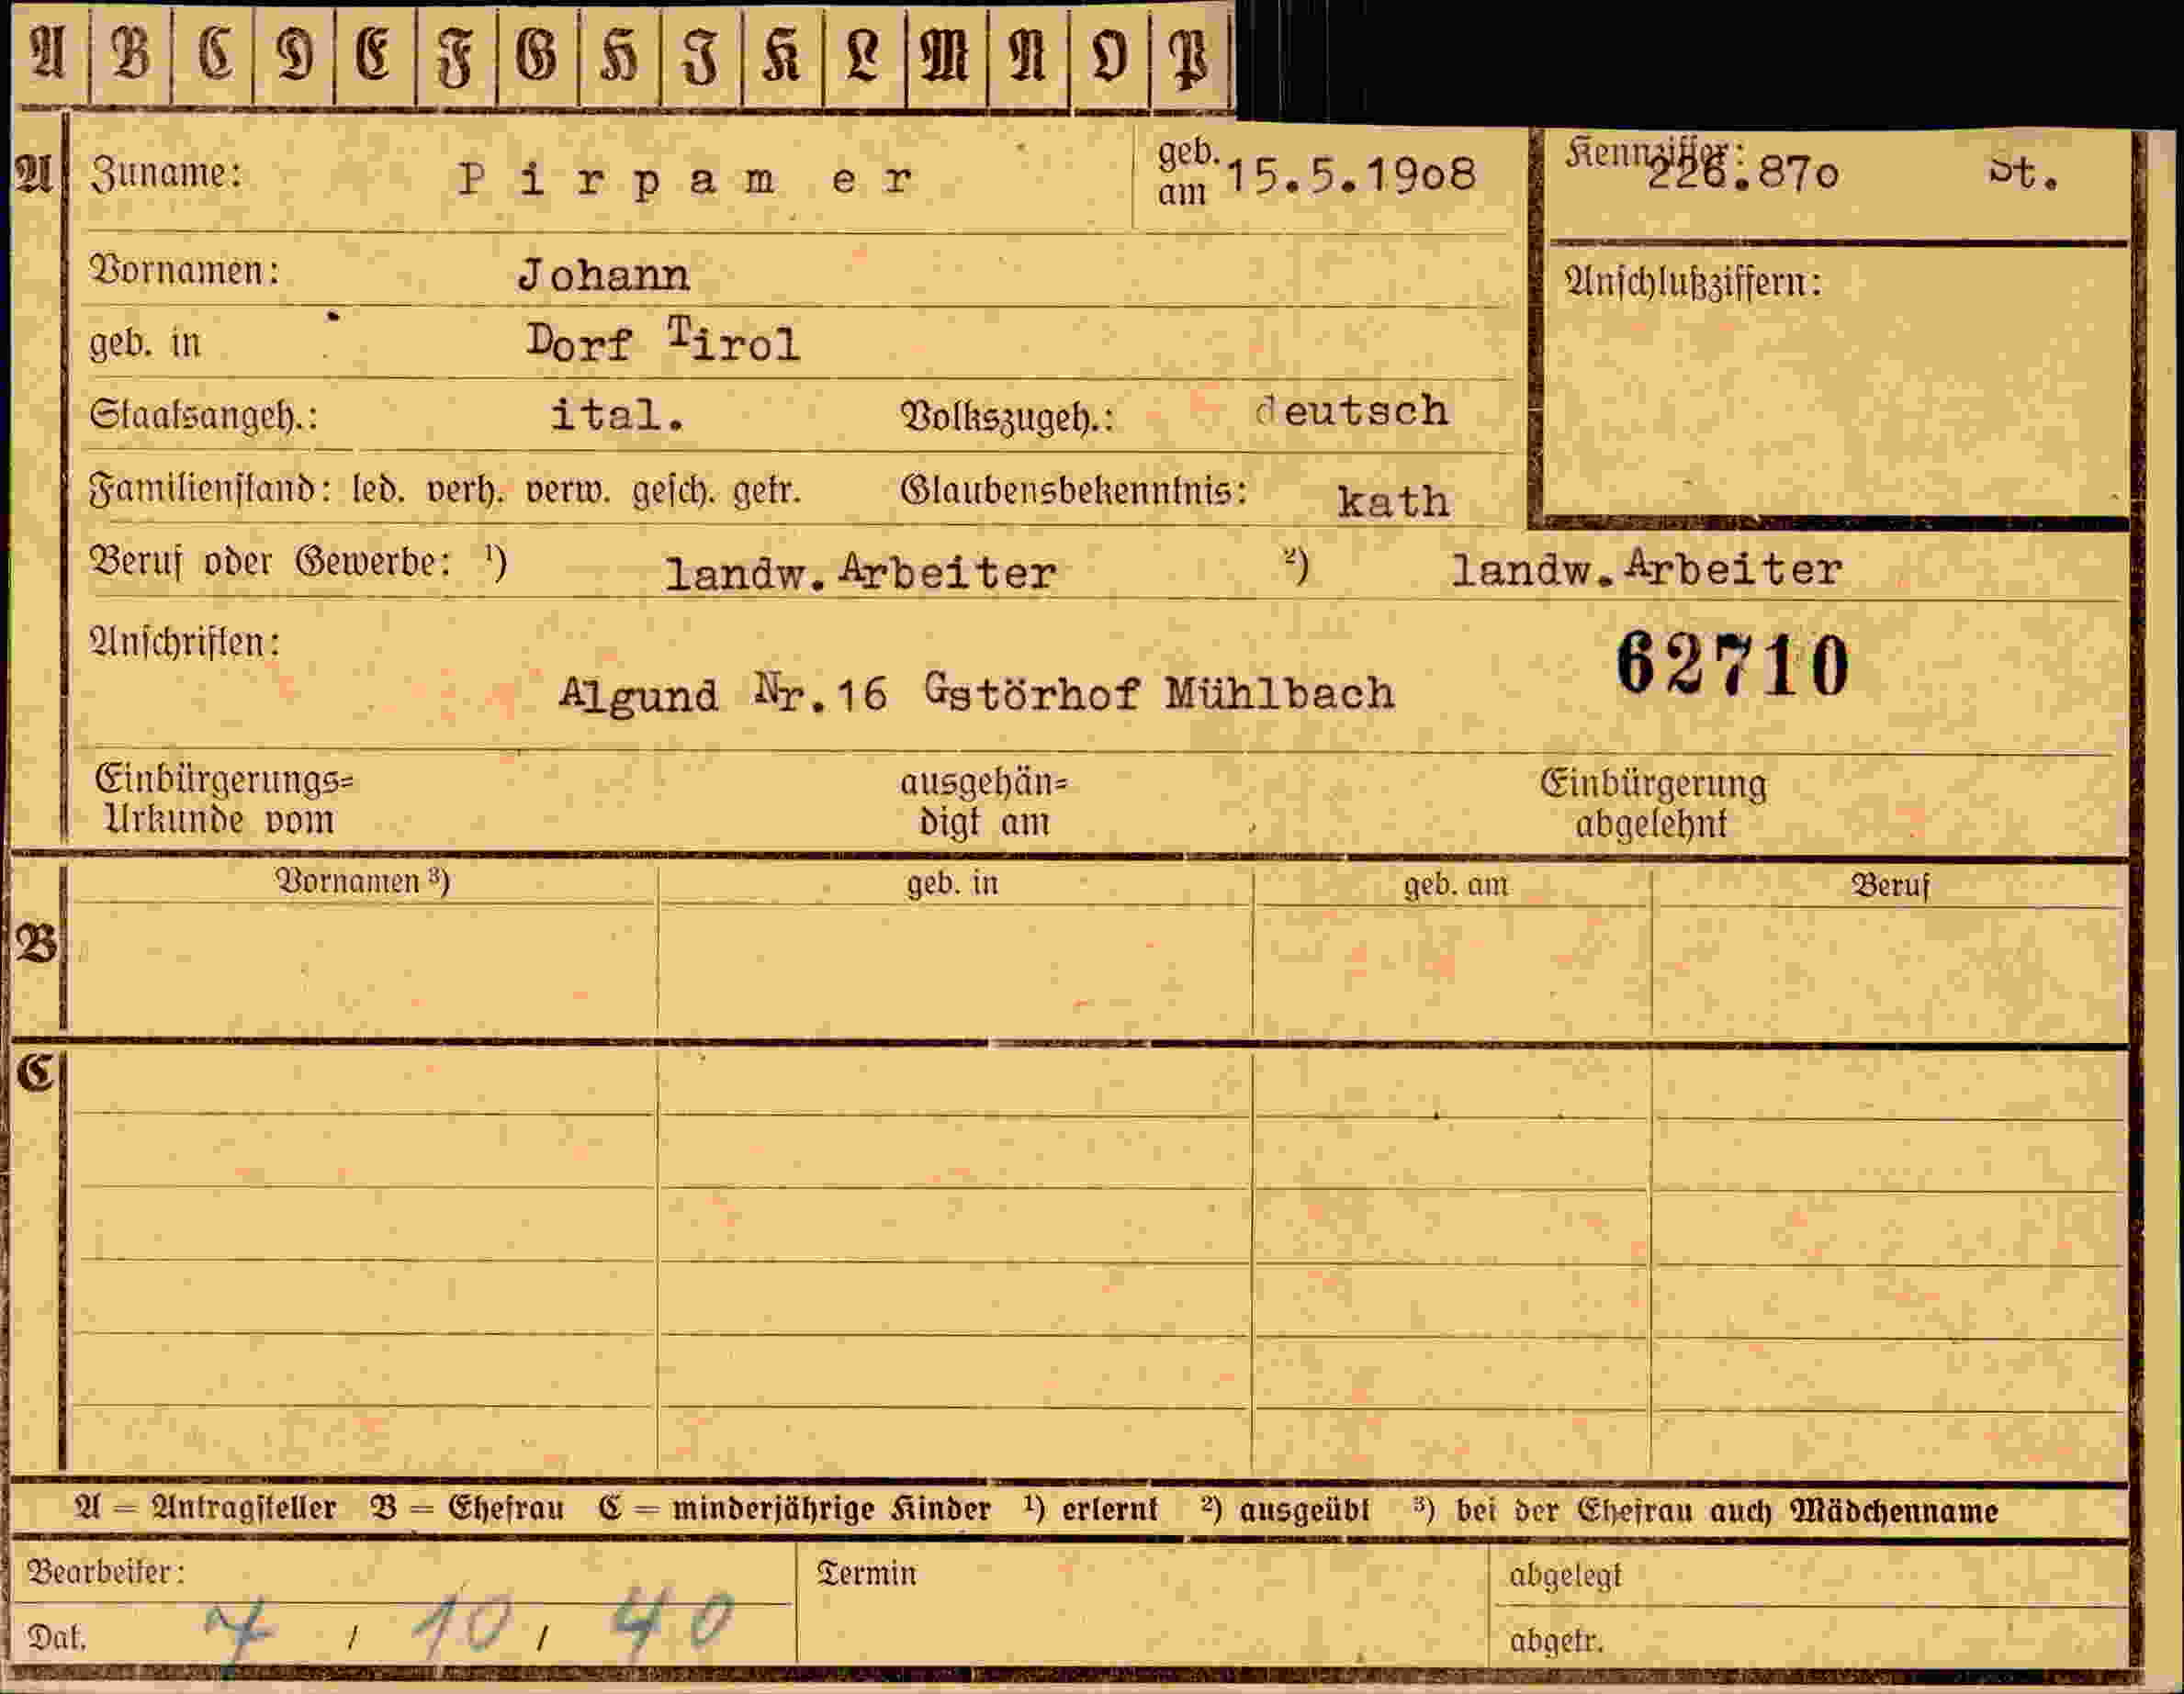 A B C D E F G H I K L M N O P
A Zuname: Pirpamer geb. am 15.5.1908 Kennziffer: 226.870 St.
Vornamen: Johann Anschlußziffern:
geb. in Dorf Tirol
Staatsangeh.: ital. Volkszugeh.: deutsch
Familienstand: led. verh. verw. gesch. getr. Glaubensbekenntnis: kath
Beruf oder Gewerbe: ¹) landw.Arbeiter ²) landw.Arbeiter
Anschriften: 62710
Algund Nr.16 Gstörhof Mühlbach
Einbürgerungs= ausgehän= Einbürgerung
Urkunde vom digt am abgelehnt
Vornamen ³) geb. in geb. am Beruf
B
C
A = Antragsteller B = Ehefrau C = minderjährige Kinder ¹) erlernt ²) ausgeübt ³) bei der Ehefrau auch Mädchenname
Bearbeiter: Termin abgelegt
Dat. 7 / 10 / 40 abgetr.